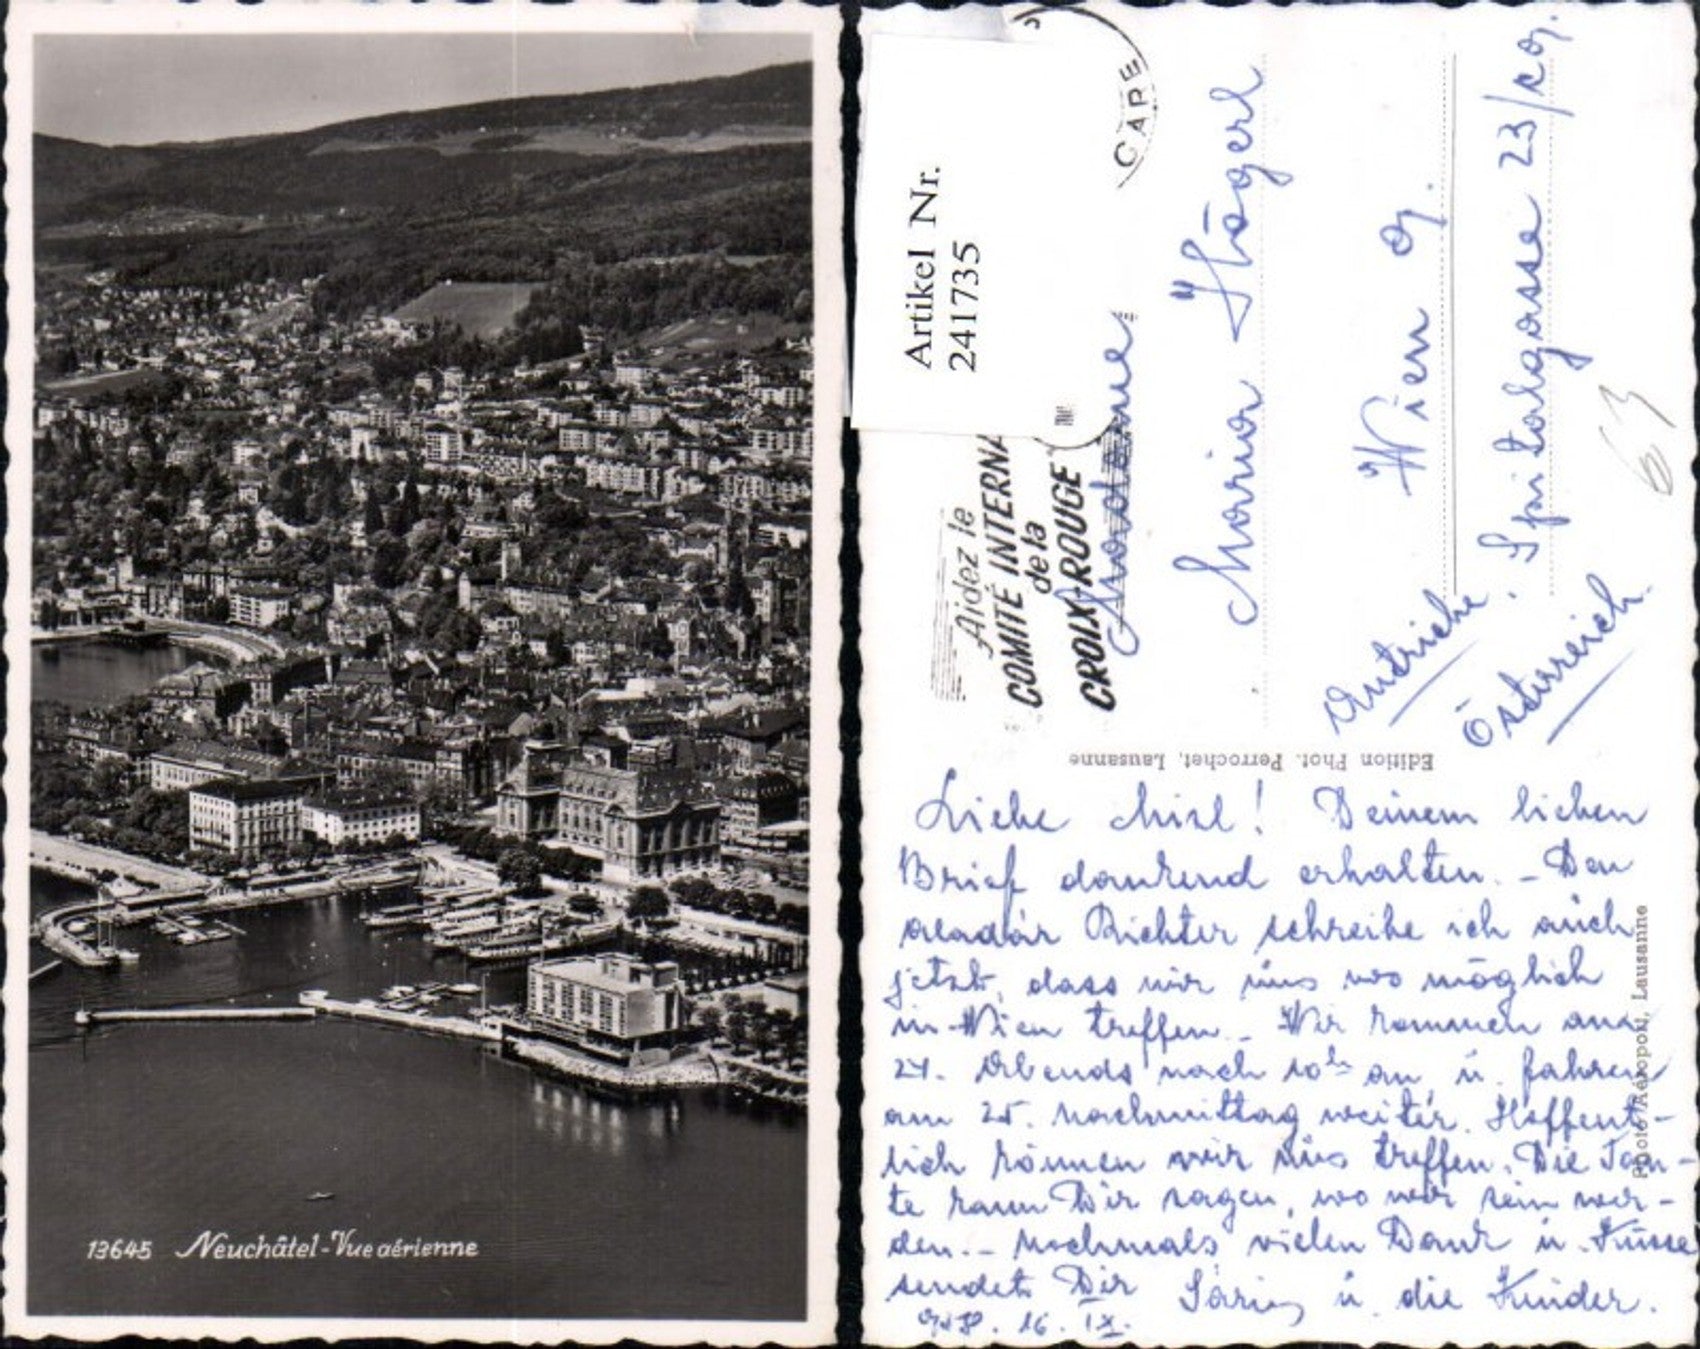 13645 Neuchâtel - Vue aérienne
Artikel Nr.
241735
CARE
Aidez le
COMITÉ INTERNA
de la
CROIX-ROUGE
Madame
Maria Högerl
Wien
Spitalgasse 23/
Autriche
Österreich
63
Edition Phot. Perrochet, Lausanne
Photo Aéroport, Lausanne
Liebe Misl! Deinem lieben
Brief dankend erhalten. - Den
Aladár Richter schreibe ich auch
jetzt, dass wir uns wo möglich
in Wien treffen. - Wir kommen am
24. Abends nach 10h an u. fahren
am 25. nachmittag weiter. Hoffent-
lich können wir uns treffen. Die Tan-
te kann Dir sagen, wo wir sein wer-
den. - Nochmals vielen Dank u. Küsse
sendet Dir u. die Kinder.
16. IX.